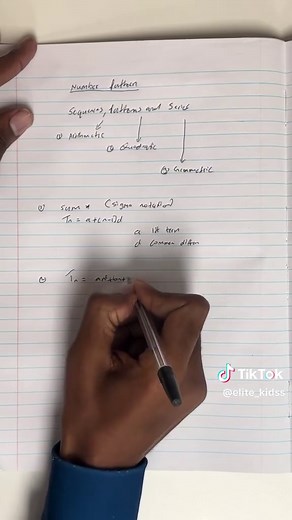 Number pattern
Sequences, patterns and Series
① Arithmetic
② Quadratic
③ Geometric
① sum * (sigma notation)
Tn = a+(n-1)d
a 1st term
d common
② Tn =
TikTok
@elite_kidss